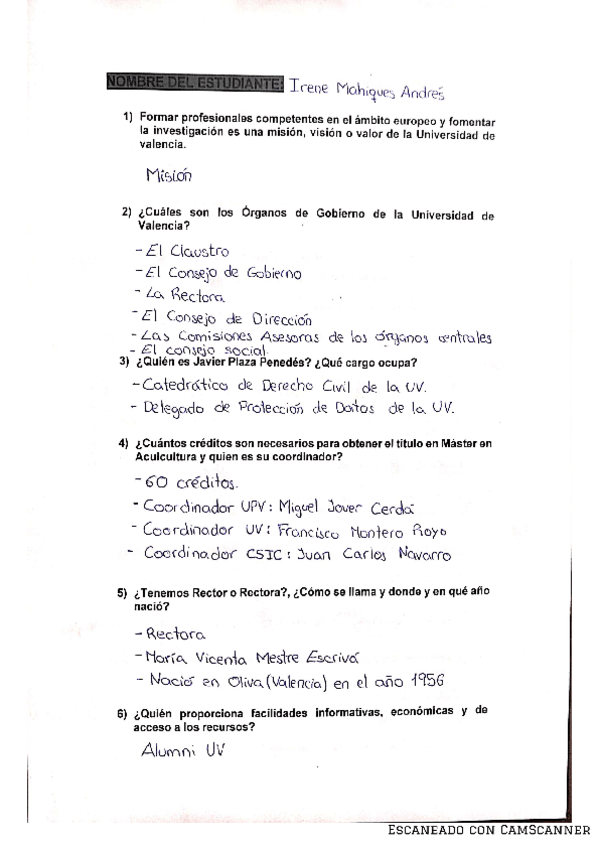 NOMBRE DEL ESTUDIANTE: Irene Mahiques Andrés
1) Formar profesionales competentes en el ámbito europeo y fomentar
la investigación es una misión, visión o valor de la Universidad de
valencia.
Misión
2) ¿Cuáles son los Órganos de Gobierno de la Universidad de
Valencia?
- El Claustro
- El Consejo de Gobierno
- La Rectora
- El Consejo de Dirección
- Las Comisiones Asesoras de los órganos centrales
- El consejo social.
3) ¿Quién es Javier Plaza Penedés? ¿Qué cargo ocupa?
- Catedrático de Derecho Civil de la UV.
- Delegado de Protección de Datos de la UV.
4) ¿Cuántos créditos son necesarios para obtener el título en Máster en
Aculcultura y quien es su coordinador?
- 60 créditos.
- Coordinador UPV: Miguel Jover Cerdá
- Coordinador UV: Francisco Montero Royo
- Coordinador CSIC: Juan Carlos Navarro
5) ¿Tenemos Rector o Rectora?, ¿Cómo se llama y donde y en qué año
nació?
- Rectora
- María Vicenta Mestre Escrivá
- Nació en Oliva (Valencia) en el año 1956
6) ¿Quién proporciona facilidades informativas, económicas y de
acceso a los recursos?
Alumni UV
Escaneado con CamScanner